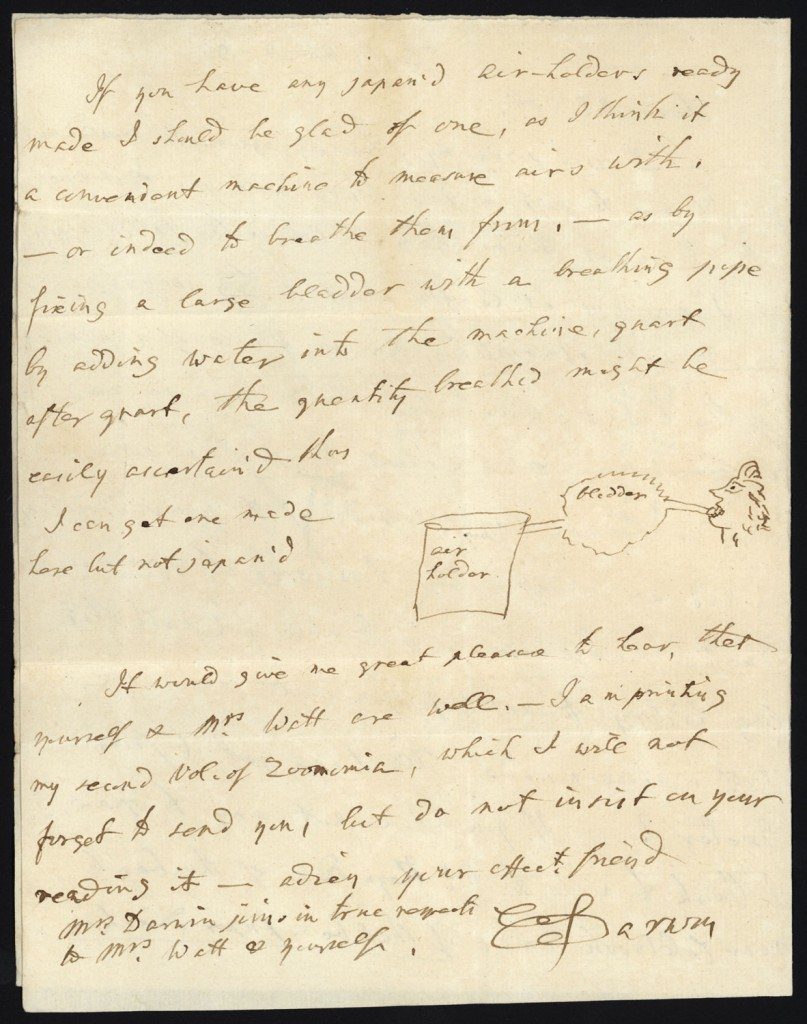 If you have any japan'd air-holders ready
made I should be glad of one, as I think it
a convenient machine to measure airs with.
— or indeed to breathe them from, — as by
fixing a large bladder with a breathing pipe
by adding water into the machine, quart
after quart, the quantity breath'd might be
easily ascertain'd thus
I can get one made
here but not japan'd
bladder
air
holder
It would give me great pleasure to hear, that
yourself & Mrs Watt are well. — I am printing
my second Vol. of Zoonomia, which I will not
forget to send you, but do not insist on your
reading it — adieu your affect. friend
E Darwin
Mrs. Darwin joins in true respects
to Mrs. Watt & yourself.